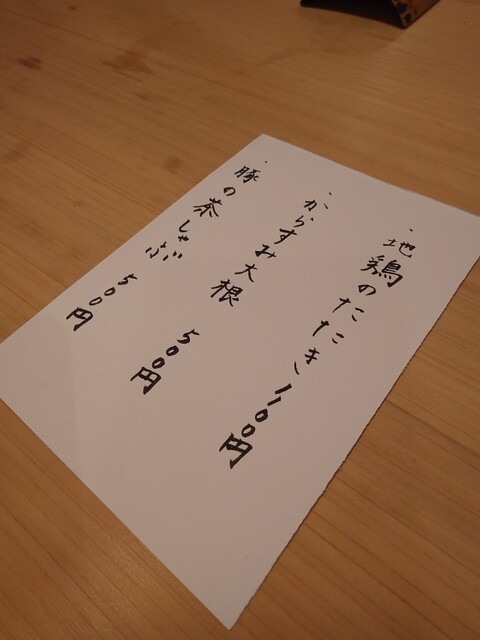 ・地鶏のたたき 1100円
・からすみ大根 500円
・豚の茶しゃぶ 500円